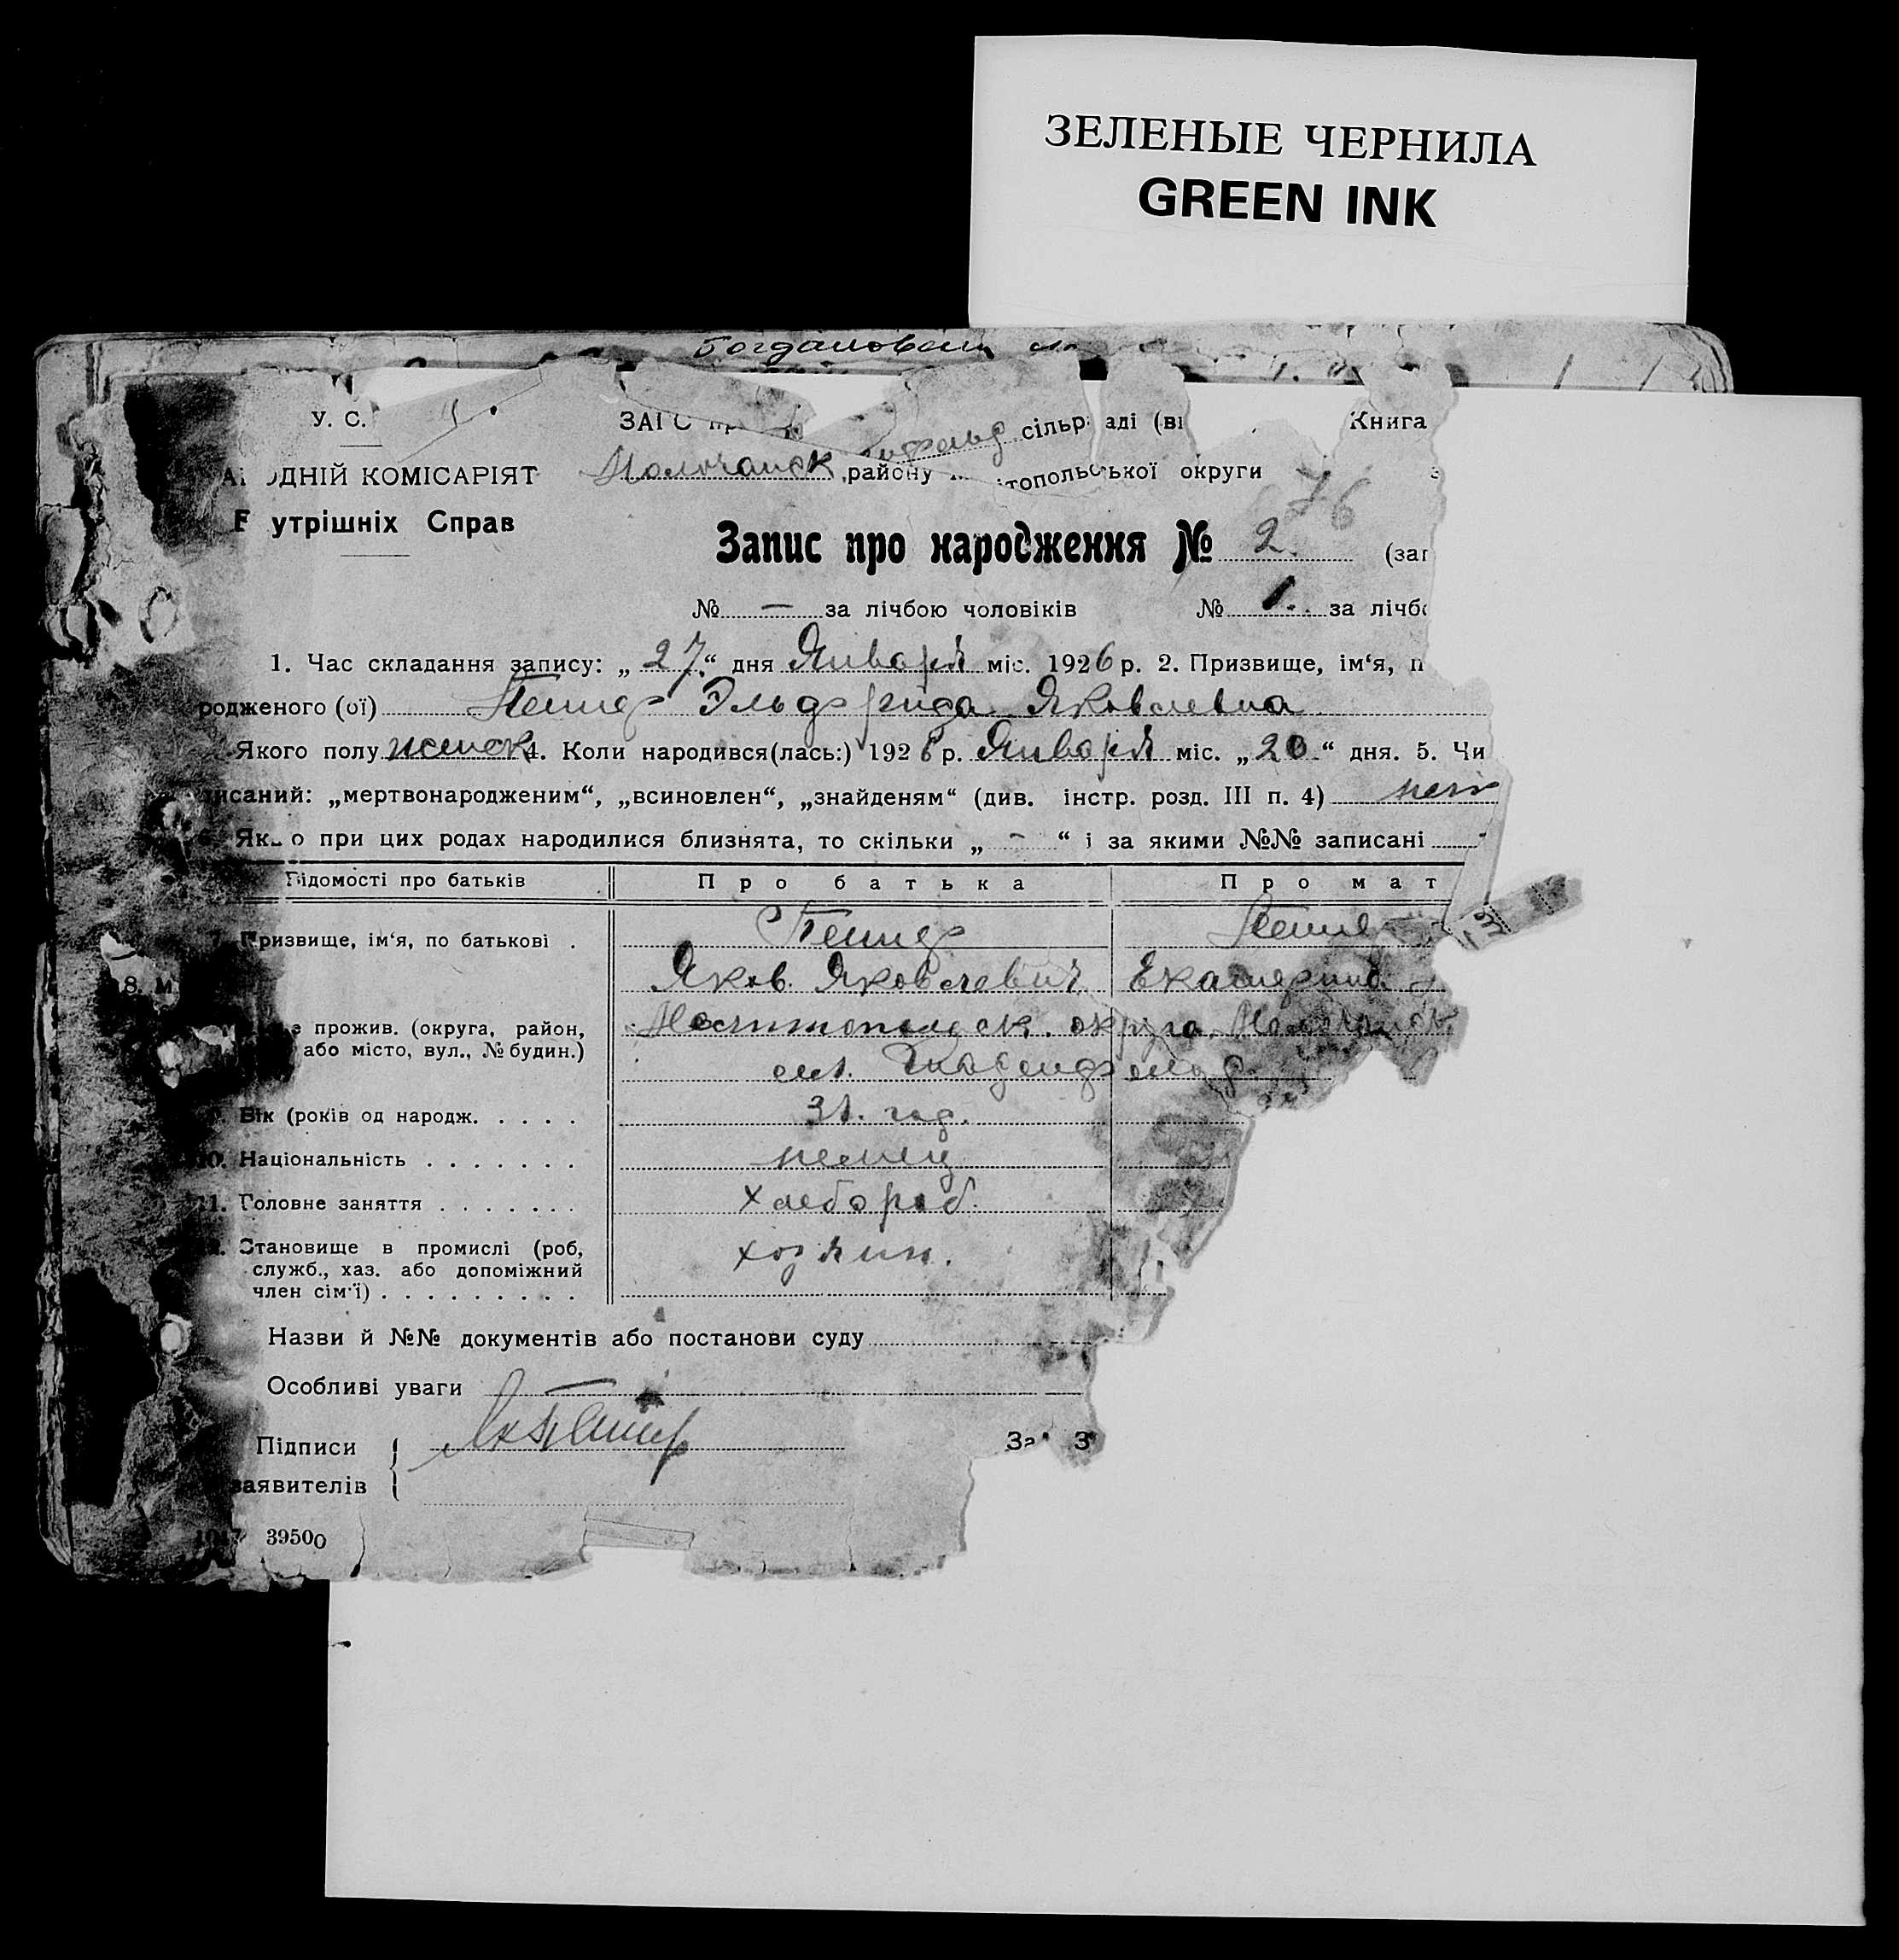 ЗЕЛЕНЫЕ ЧЕРНИЛА
GREEN INK
У. С.
ЗАГС сільраді
Книга
КОМІСАРІЯТ
Молочанск району округи
76
утрішніх Справ
Запис про народження № 2.
№ — за лічбою чоловіків № 1. за лічб
1. Час складання запису: „27.“ дня Января міс. 1926 р. 2. Призвище, ім‘я, п
родженого (ої) Эльдфрида Яковлевна
Якого полу женск 4. Коли народився(лась:) 1926 р. Января міс. „20.“ дня. 5. Чи
исаний: „мертвонародженим“, „всиновлен“, „знайденям“ (див. інстр. розд. III п. 4) нет
о при цих родах народилися близнята, то скільки „ - “ і за якими №№ записані -
Відомості про батьків
Про батька
Про мат
Призвище, ім‘я, по батькові .
8. М
Яков Яковлевич Екатерина
прожив. (округа, район,
або місто, вул., № будин.)
Мелитопольск. округа, Молочанск
Вік (років од народж. . . . . 31. год.
10. Національність . . . . . . . немец
11. Головне заняття . . . . . . . хлебороб.
Становище в промислі (роб,
служб., хаз. або допоміжний
член сім‘ї) . . . . . . . . .
хозяин.
Назви й №№ документів або постанови суду
Особливі уваги —
Підписи
заявителів
39500